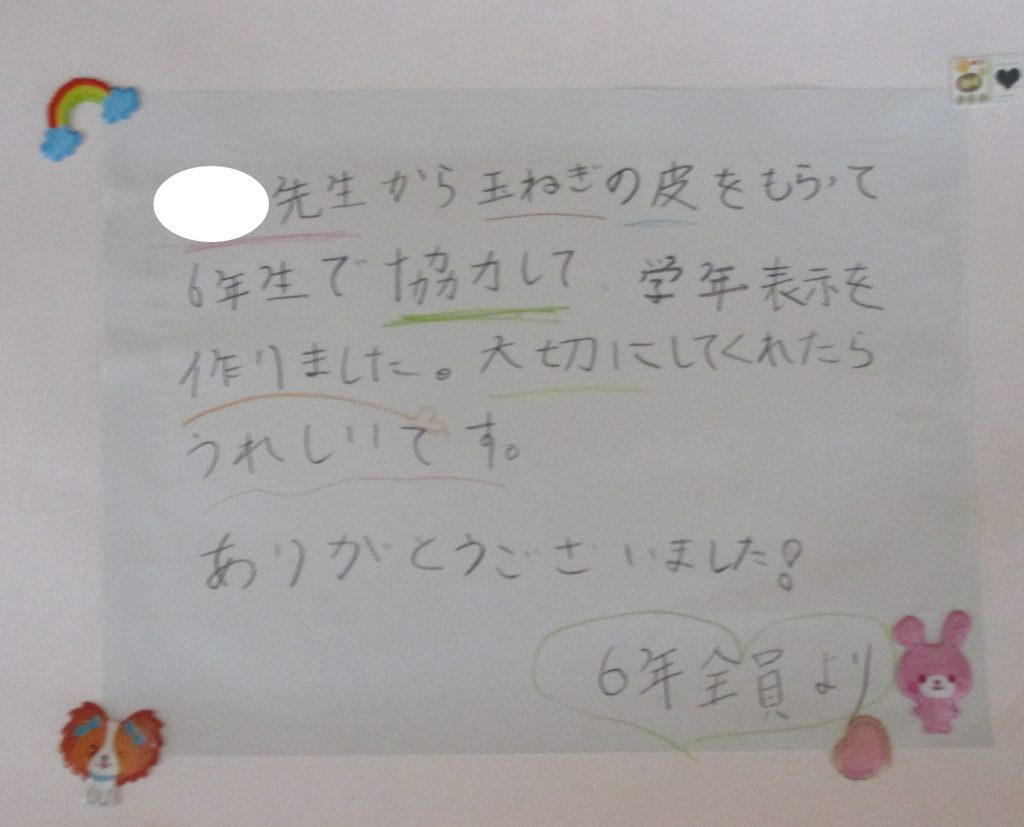 先生から玉ねぎの皮をもらって
6年生で協力して 学年表示を
作りました。大切にしてくれたら
うれしいです。
ありがとうございました!
6年全員より